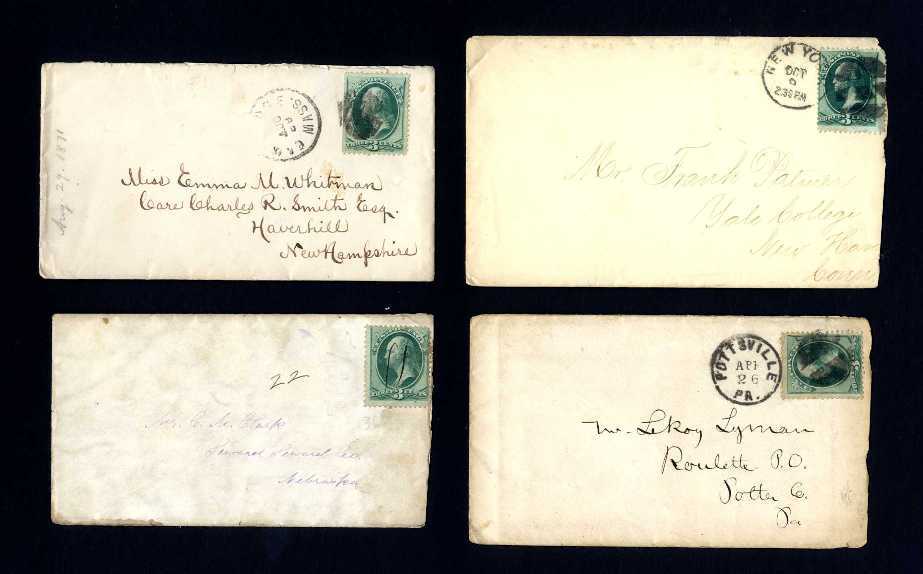 Aug 29. 1871
MASS.
3 CENTS
Miss Emma M. Whitman
Care Charles R. Smith Esq.
Haverhill
New Hampshire
NEW YO
OCT
2:30 P.M
3 CENTS
Mr Frank Palmer
Yale College
New Hav
Conn
22
3 CENTS
Mr. C. M.
Seward Seward Co.
Nebraska
POTTSVILLE
APR
26
PA.
Mr. LeRoy Lyman
Roulette P.O.
Potter Co.
Pa